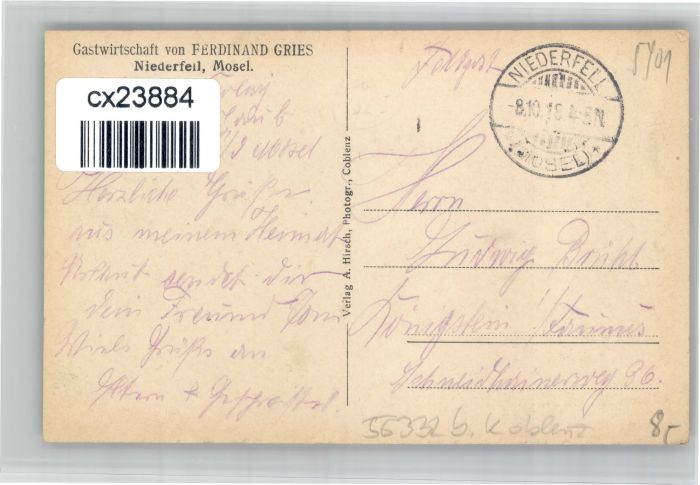 Gastwirtschaft von FERDINAND GRIES
Niederfell, Mosel.
cx23884
Mosel
Herzliche Grüße
aus meinem Heimat
Urlaub sendet dir
dein Freund Toni
Viele Grüße an
Eltern + Geschwister.
Verlag A. Hirsch, Photogr., Coblenz
Feldpost
NIEDERFELL
8.10.18 4-5N
(MOSEL)
Herrn
Ludwig
Königstein i/Taunus
Schneidhainerweg 36.
56332 b. Koblenz
8,-